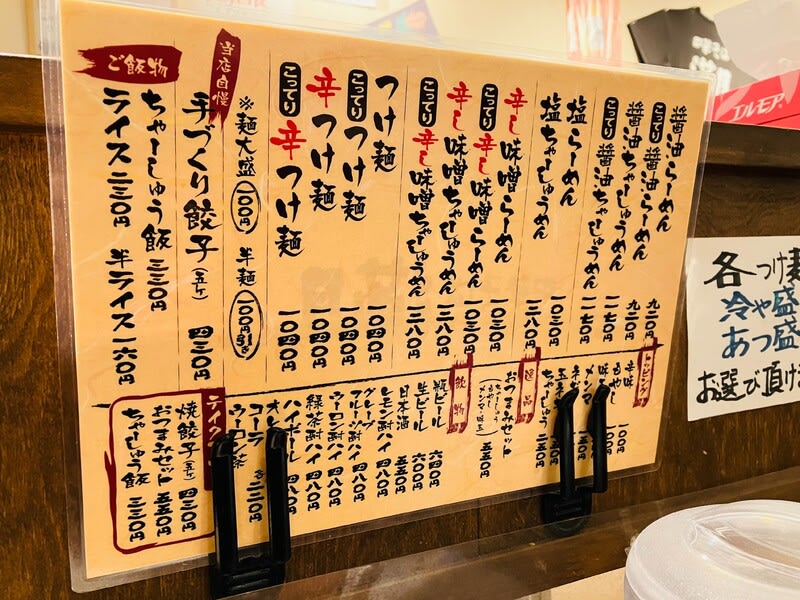 醤油らーめん 九二〇円
こってり 醤油らーめん 九二〇円
醤油ちゃーしゅうめん 一一七〇円
こってり 醤油ちゃーしゅうめん 一一七〇円
塩らーめん 一〇三〇円
塩ちゃーしゅうめん 一二八〇円
辛し味噌らーめん 一〇三〇円
こってり 辛し味噌らーめん 一〇三〇円
辛し味噌ちゃーしゅうめん 一二八〇円
こってり 辛し味噌ちゃーしゅうめん 一二八〇円
つけ麺 一〇四〇円
こってり つけ麺 一〇四〇円
辛つけ麺 一〇四〇円
こってり 辛つけ麺 一〇四〇円
※麺大盛 一〇〇円 半麺 一〇〇円引き
当店自慢
手づくり餃子(五ヶ) 四三〇円
ご飯物
ちゃーしゅう飯 三三〇円
ライス 二三〇円 半ライス 一六〇円
トッピング
辛味 一〇〇円
もやし
メンマ
ちゃーしゅう 二五〇円
逸品
おつまみセット
(ちゃーしゅう もやし メンマ・味玉) 五五〇円
飲物
瓶ビール 六四〇円
生ビール 六〇〇円
日本酒 五五〇円
レモン酎ハイ 四八〇円
グレープフルーツ酎ハイ 四八〇円
ウーロン酎ハイ 四八〇円
緑茶酎ハイ 四八〇円
ハイボール 四八〇円
コーラ
ウーロン茶 各二二〇円
焼餃子(五ヶ) 四三〇円
おつまみセット 五五〇円
ちゃーしゅう飯 三三〇円
エルモア
各つけ麺
冷や盛
あつ盛
お選び頂け